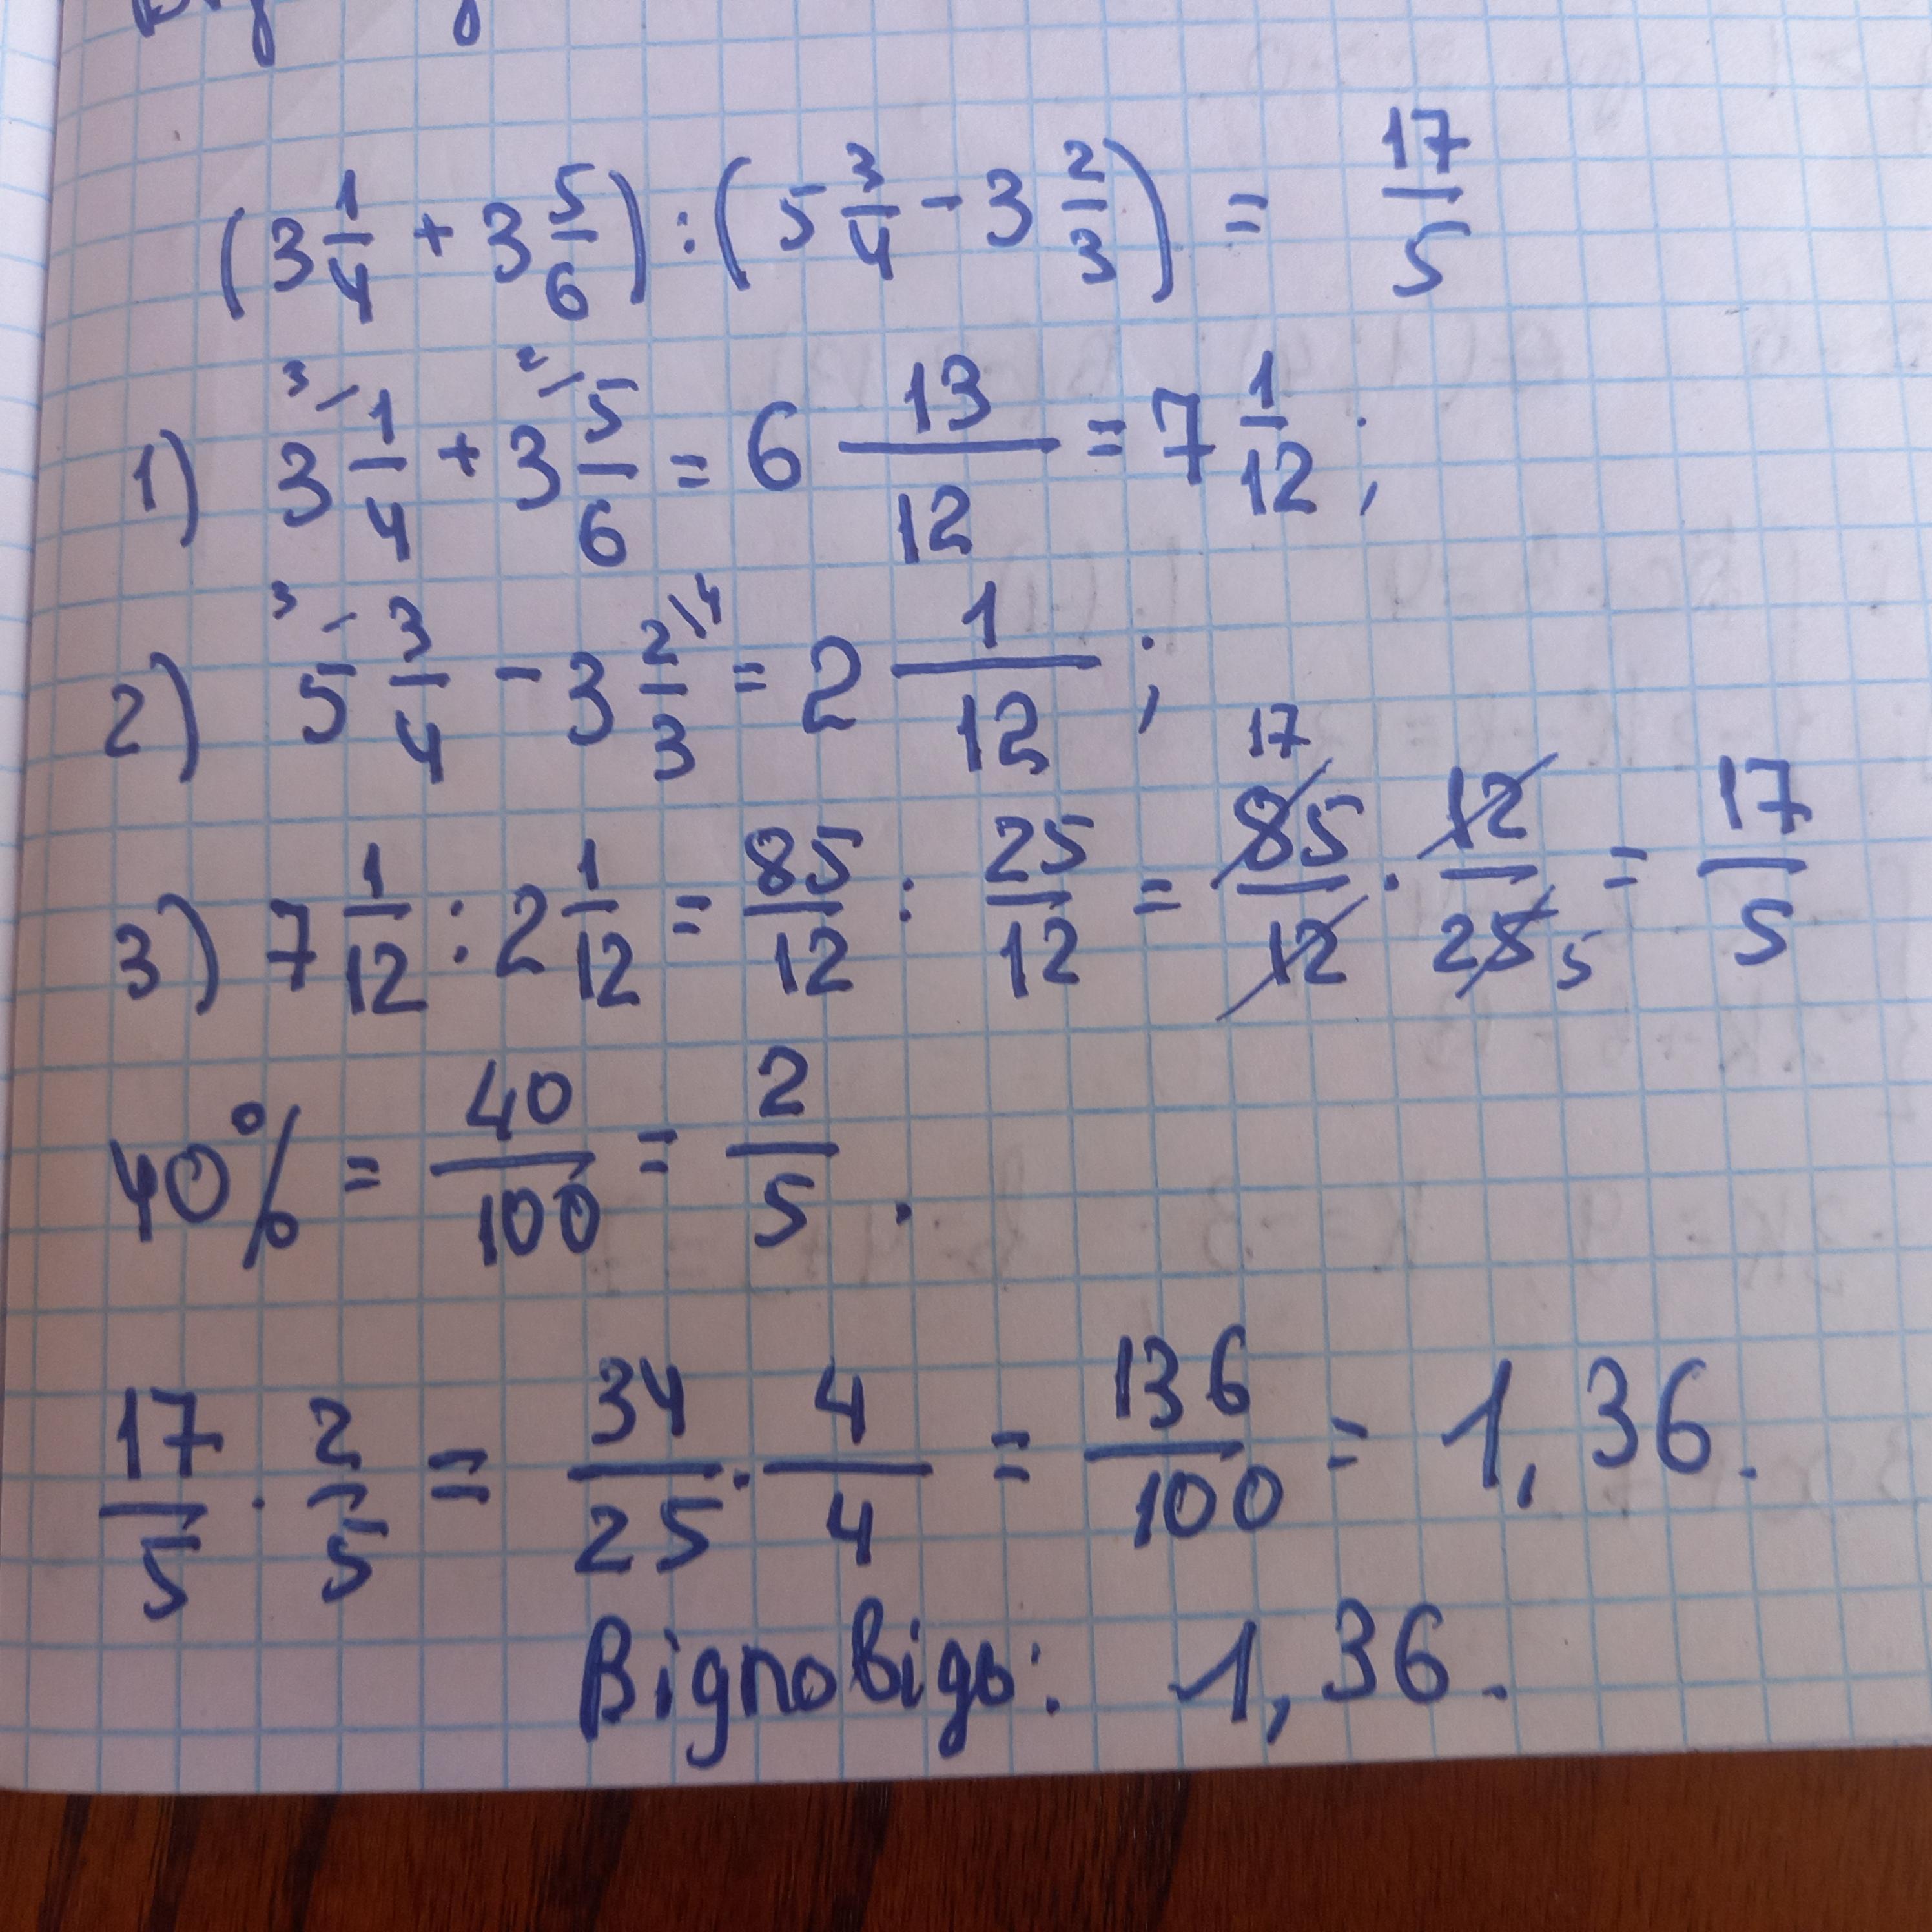 (3 1/4 + 3 5/6) : (5 3/4 - 3 2/3) = 17/5
1) 3 1/4 + 3 5/6 = 6 13/12 = 7 1/12;
2) 5 3/4 - 3 2/3 = 2 1/12;
3) 7 1/12 : 2 1/12 = 85/12 : 25/12 = 85/12 · 12/25 = 17/5
40% = 40/100 = 2/5.
17/5 · 2/5 = 34/25 · 4/4 = 136/100 = 1,36.
Відповідь: 1,36.